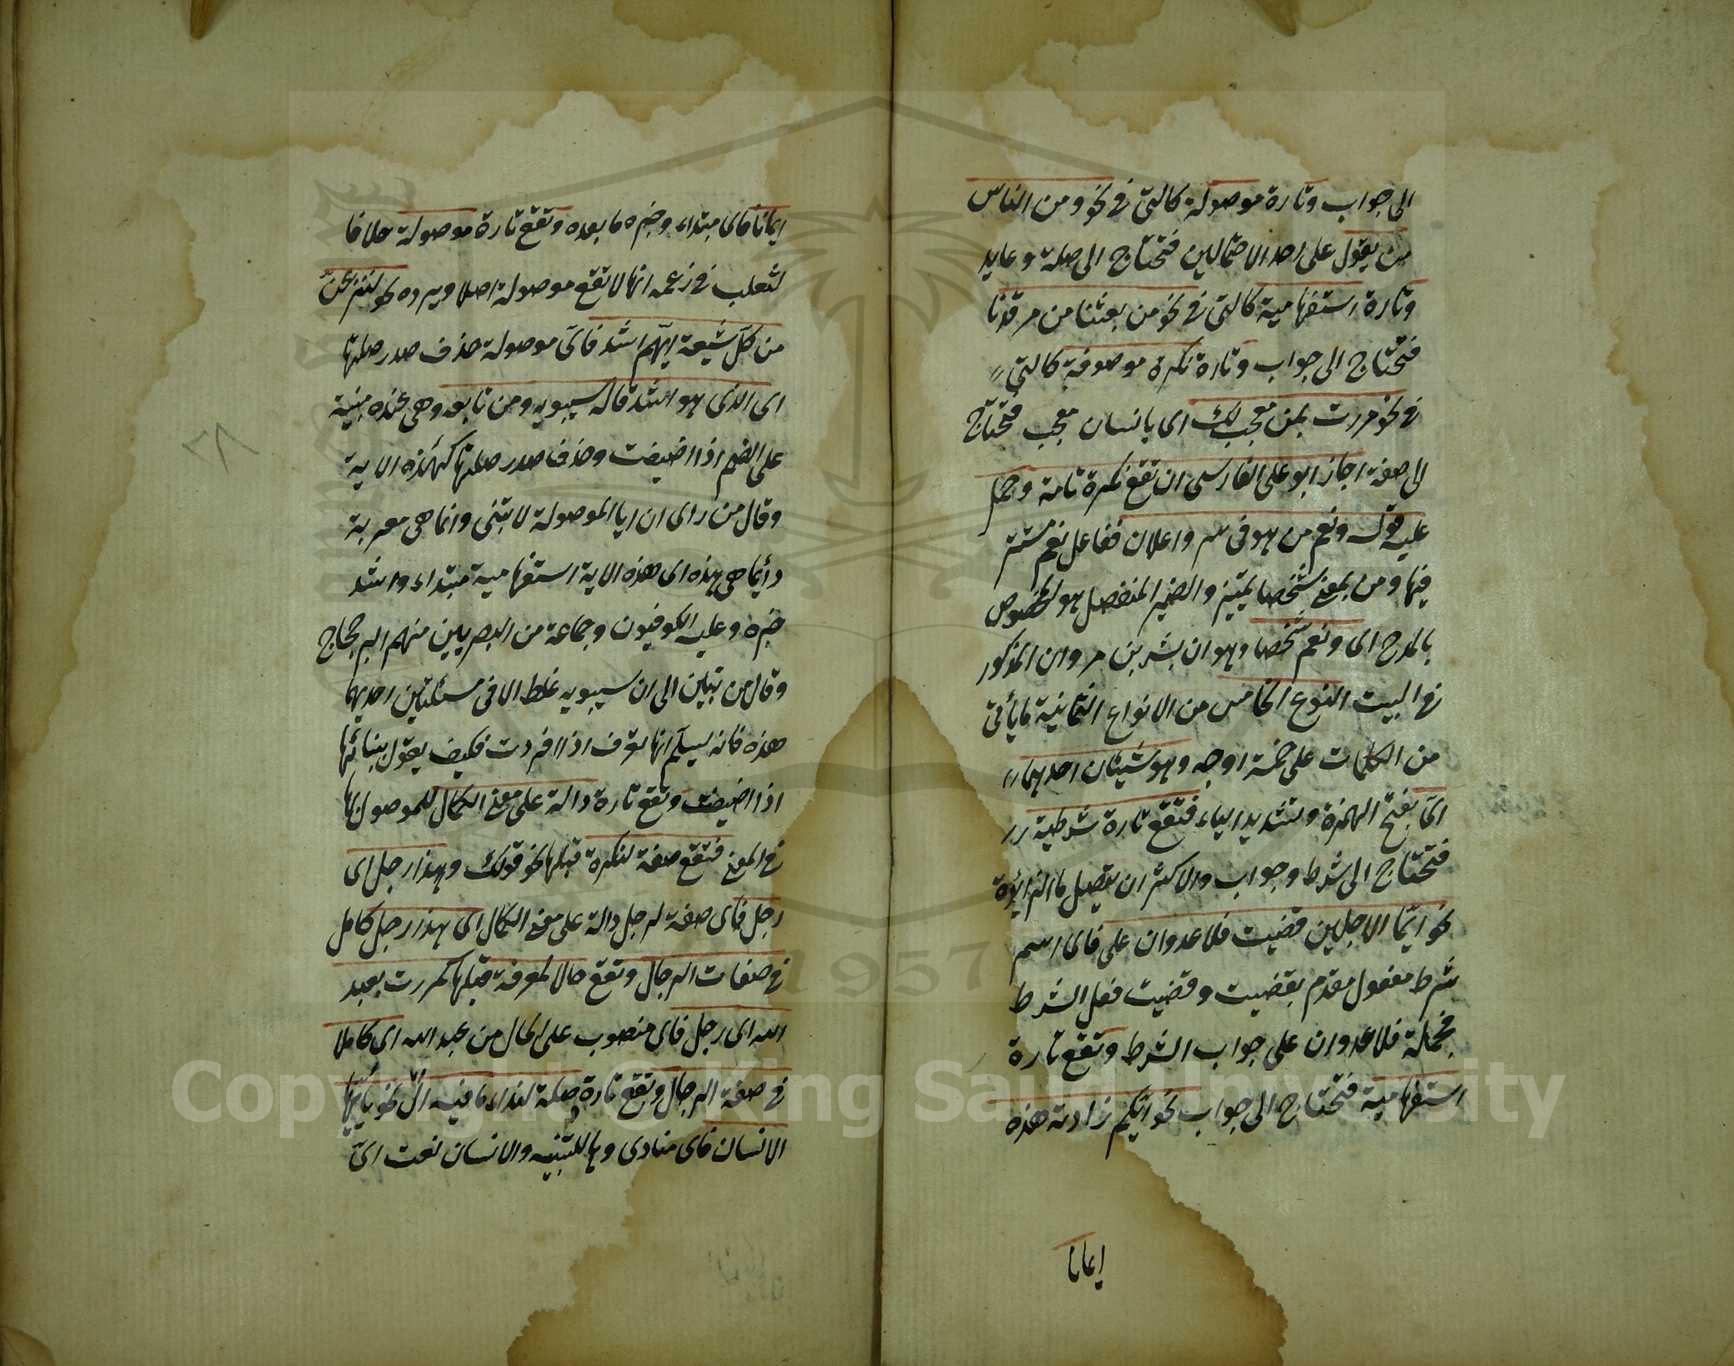 الى جواب وتارة موصولة كالتي في نحو ومن الناس
من يقول على احد الاحتمالين فتحتاج الى صلة وعايد
وتارة استفهامية كالتي في نحو من بعثنا من مرقدنا
فتحتاج الى جواب وتارة نكرة موصوفة كالتي
في نحو مررت بمن معجب لك اى بانسان معجب فتحتاج
الى صفة اجاز ابو على الفارسى ان تقع نكرة تامة وحمل
عليه قوله ونعم من هو فى سر واعلان ففاعل نعم مستتر
فيها ومن بمعنى شخصا تمييز والضمير المنفصل هو المخصوص
بالمدح اى ونعم شخصا وهو ان بشر بن مروان المذكور
في البيت النوع الخامس من الانواع الثمانية ما يأتى
من الكلمات على خمسة اوجه وهو شيئان احدهما
اىّ بفتح الهمزة وتشديد الياء فتقع تارة شرطية
فتحتاج الى شرط وجواب والاكثر ان يتصل ما الزايدة
نحو ايّما الاجلين قضيت فلا عدوان على فاى اسم
شرط مفعول مقدم بقضيت وقضيت فعل الشرط
فجملة فلا عدوان على جواب الشرط وتقع تارة
استفهامية فتحتاج الى جواب نحو ايّكم زادته هذه
ايمانا
ايمانا فاى مبتداء وخبره ما بعده وتقع تارة موصولة خلافا
لثعلب في زعمه انها لا تقع موصولة اصلا ويرده نحو لننزعنّ
من كلّ شيعة ايّهم اشد فاىّ موصولة حذف صدر صلتها
اى الذى هو اشد قاله سيبويه ومن تابعه وهى عنده مبنية
على الضم اذا اضيفت وحذف صدر صلتها كهذه الاية
وقال من راى ان ايا الموصولة لا تبنى وانما هى معربة
وأيّما هى بهذه اى هذه الاية استفهامية مبتداء واشد
خبره وعليه الكوفيون وجماعة من البصريين منهم الزجاج
وقال من تبيّن الى ان سيبويه غلط الا فى مسئلتين احديهما
هذه فانه يسلّم انها تعرف اذا افردت فكيف يقول ببنائها
اذا اضيفت وتقع تارة دالة على معنى الكمال للموصول بها
في المعنى فتقع صفة لنكرة قبلها نحو قولك وهذا رجل اى
رجل فاى صفة لرجل دالة على معنى الكمال اى هذا رجل كامل
في صفات الرجال وتقع حالا لمعرفة قبلها كمررت بعبد
الله اى رجل فاى منصوب على الحال من عبد الله اى كاملا
في صفة الرجال وتقع تارة صلة لنداء ما فيه ال نحو يأيّها
الانسان فاى منادى وها للتنبيه والانسان نعت اىّ
1957
Copyright © King Saud University